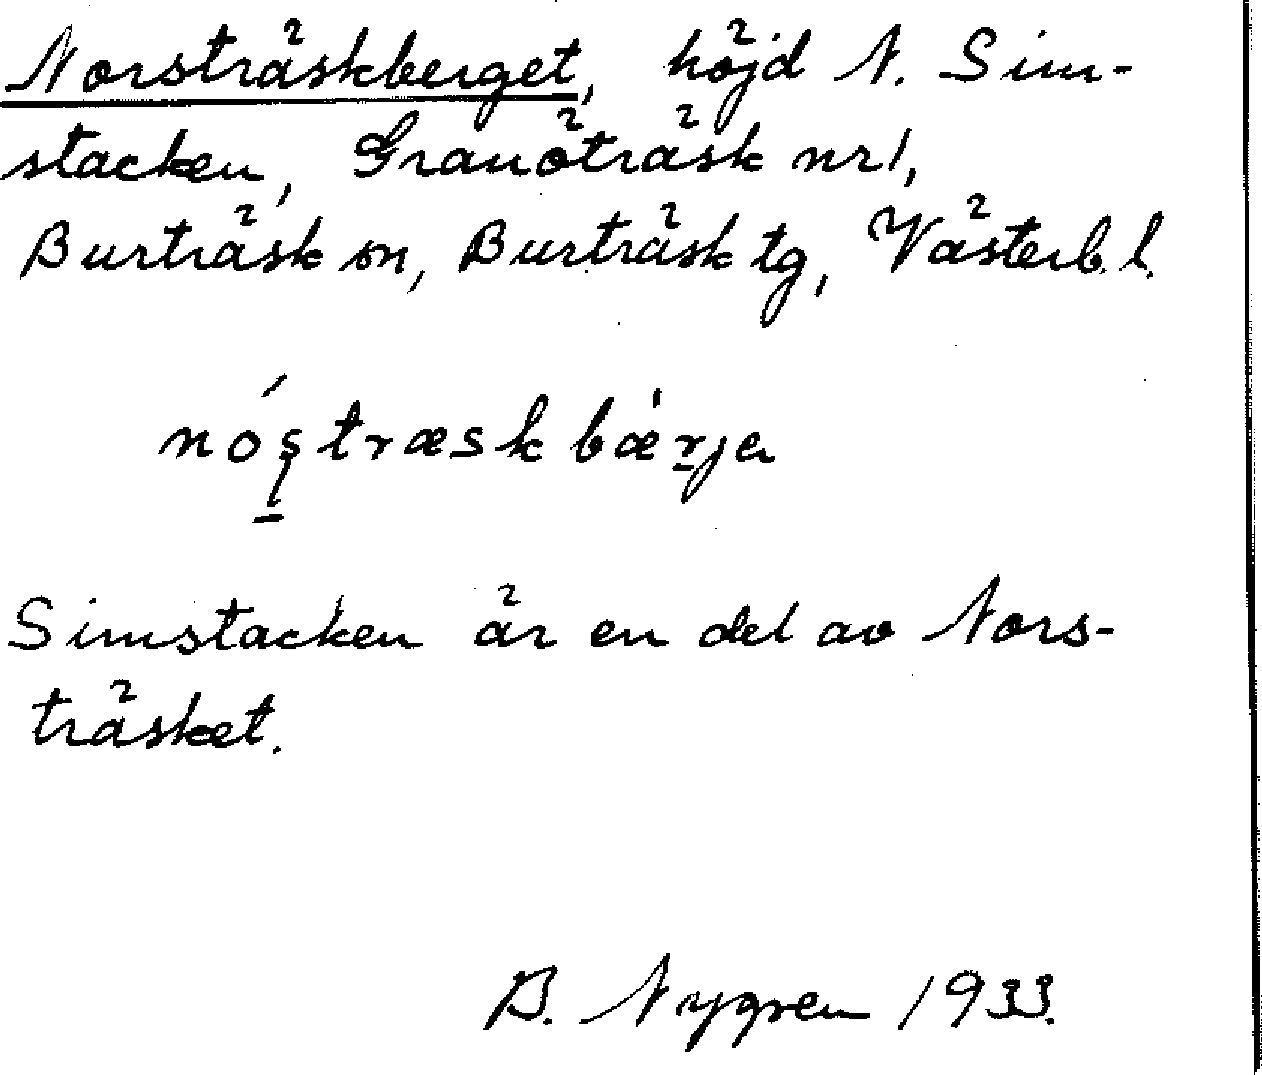 Norsträskberget, höjd N. Sim-
stacken, Granöträsk nr 1,
Burträsk sn, Burträsk tg, Västerb. l.
nóʂtræskbæ̀rja
Simstacken är en del av Nors-
träsket.
B. Nygren 1933.